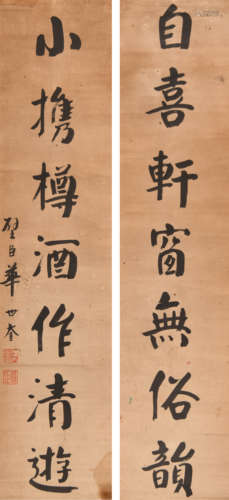 自喜軒窗無俗韻
小攜樽酒作清遊
華世奎